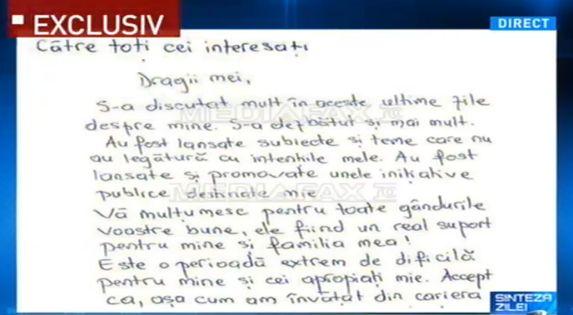 EXCLUSIV
DIRECT
Către toți cei interesați
Dragii mei,
S-a discutat mult în aceste ultime zile
despre mine. S-a dezbătut și mai mult.
Au fost lansate subiecte și teme care nu
au legătură cu intențiile mele. Au fost
lansate și promovate unele inițiative
publice destinate mie
Vă mulțumesc pentru toate gândurile
voastre bune, ele fiind un real suport
pentru mine și familia mea!
Este o perioadă extrem de dificilă
pentru mine și cei apropiați mie. Accept
ca, așa cum am învățat din cariera
MEDIAFAX
MEDIAFAX
SINTEZA
ZILEI